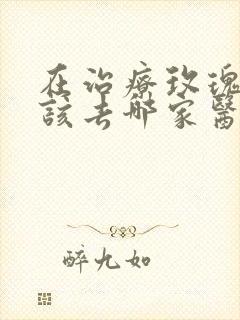 在治療玫瑰
該去哪家醫
醉九如